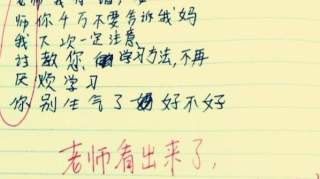 老师我有错，
师你千万不要告诉我妈
我下次一定注意
请教您学习方法，不再
厌烦学习
你别生气了好不好
老师看出来了，